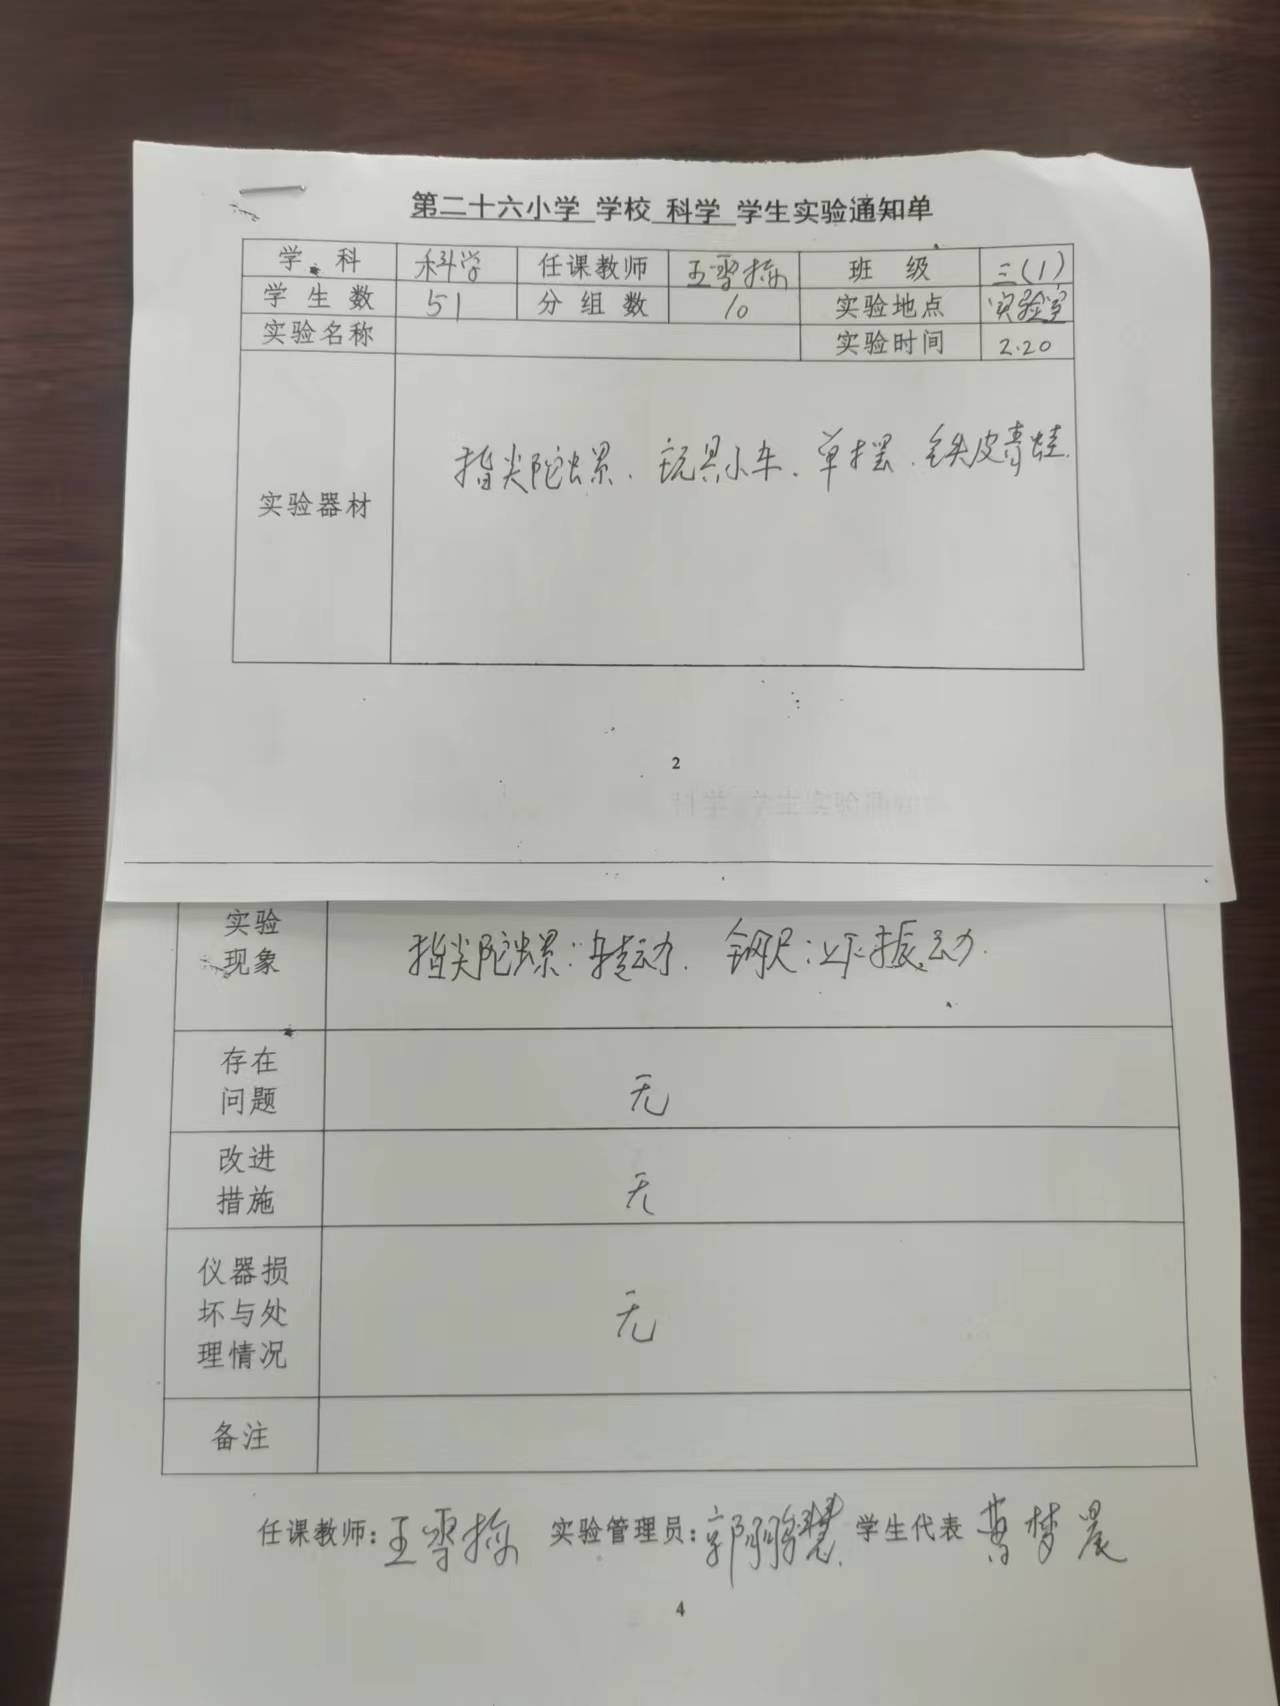 第二十六小学 学校 科学 学生实验通知单
学科 科学 任课教师 王雪梅 班级 三(1)
学生数 51 分组数 10 实验地点 实验室
实验名称 实验时间 2.20
实验器材 指尖陀螺、玩具小车、单摆、铁皮青蛙.
2
实验
现象 指尖陀螺:转动. 钢尺:上下振动.
存在
问题 无
改进
措施 无
仪器损
坏与处
理情况 无
备注
任课教师: 王雪梅 实验管理员: 郭 慧 学生代表 曹梦晨
4